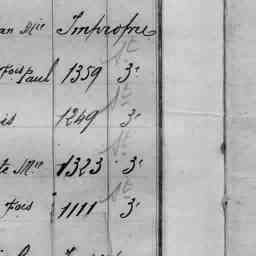 an Mie Impropre
fois Paul 1359 3e
is 1249 3e
te Mie 1323 3e
fois 1111 3e